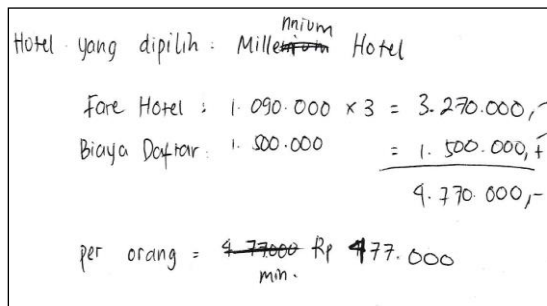 Hotel yang dipilih : Millennium Hotel
Fare Hotel : 1.090.000 x 3 = 3.270.000,-
Biaya Daftar : 1.500.000 = 1.500.000,+
4.770.000,-
per orang = 4.77.000 Rp 477.000
min.